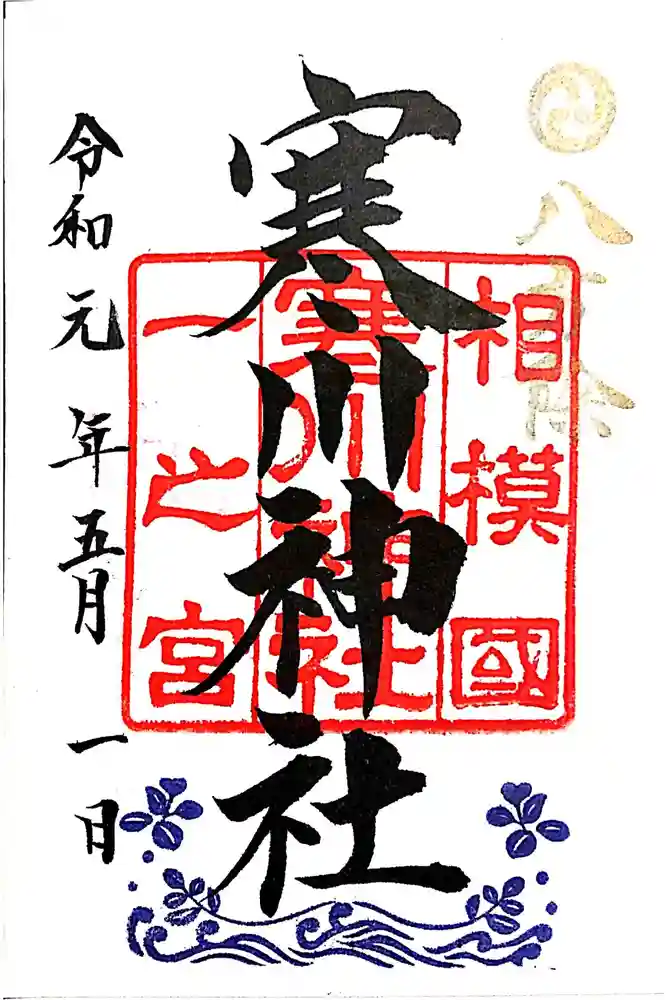 八方除
寒川神社
相模國
寒川神社
一之宮
令和元年五月一日